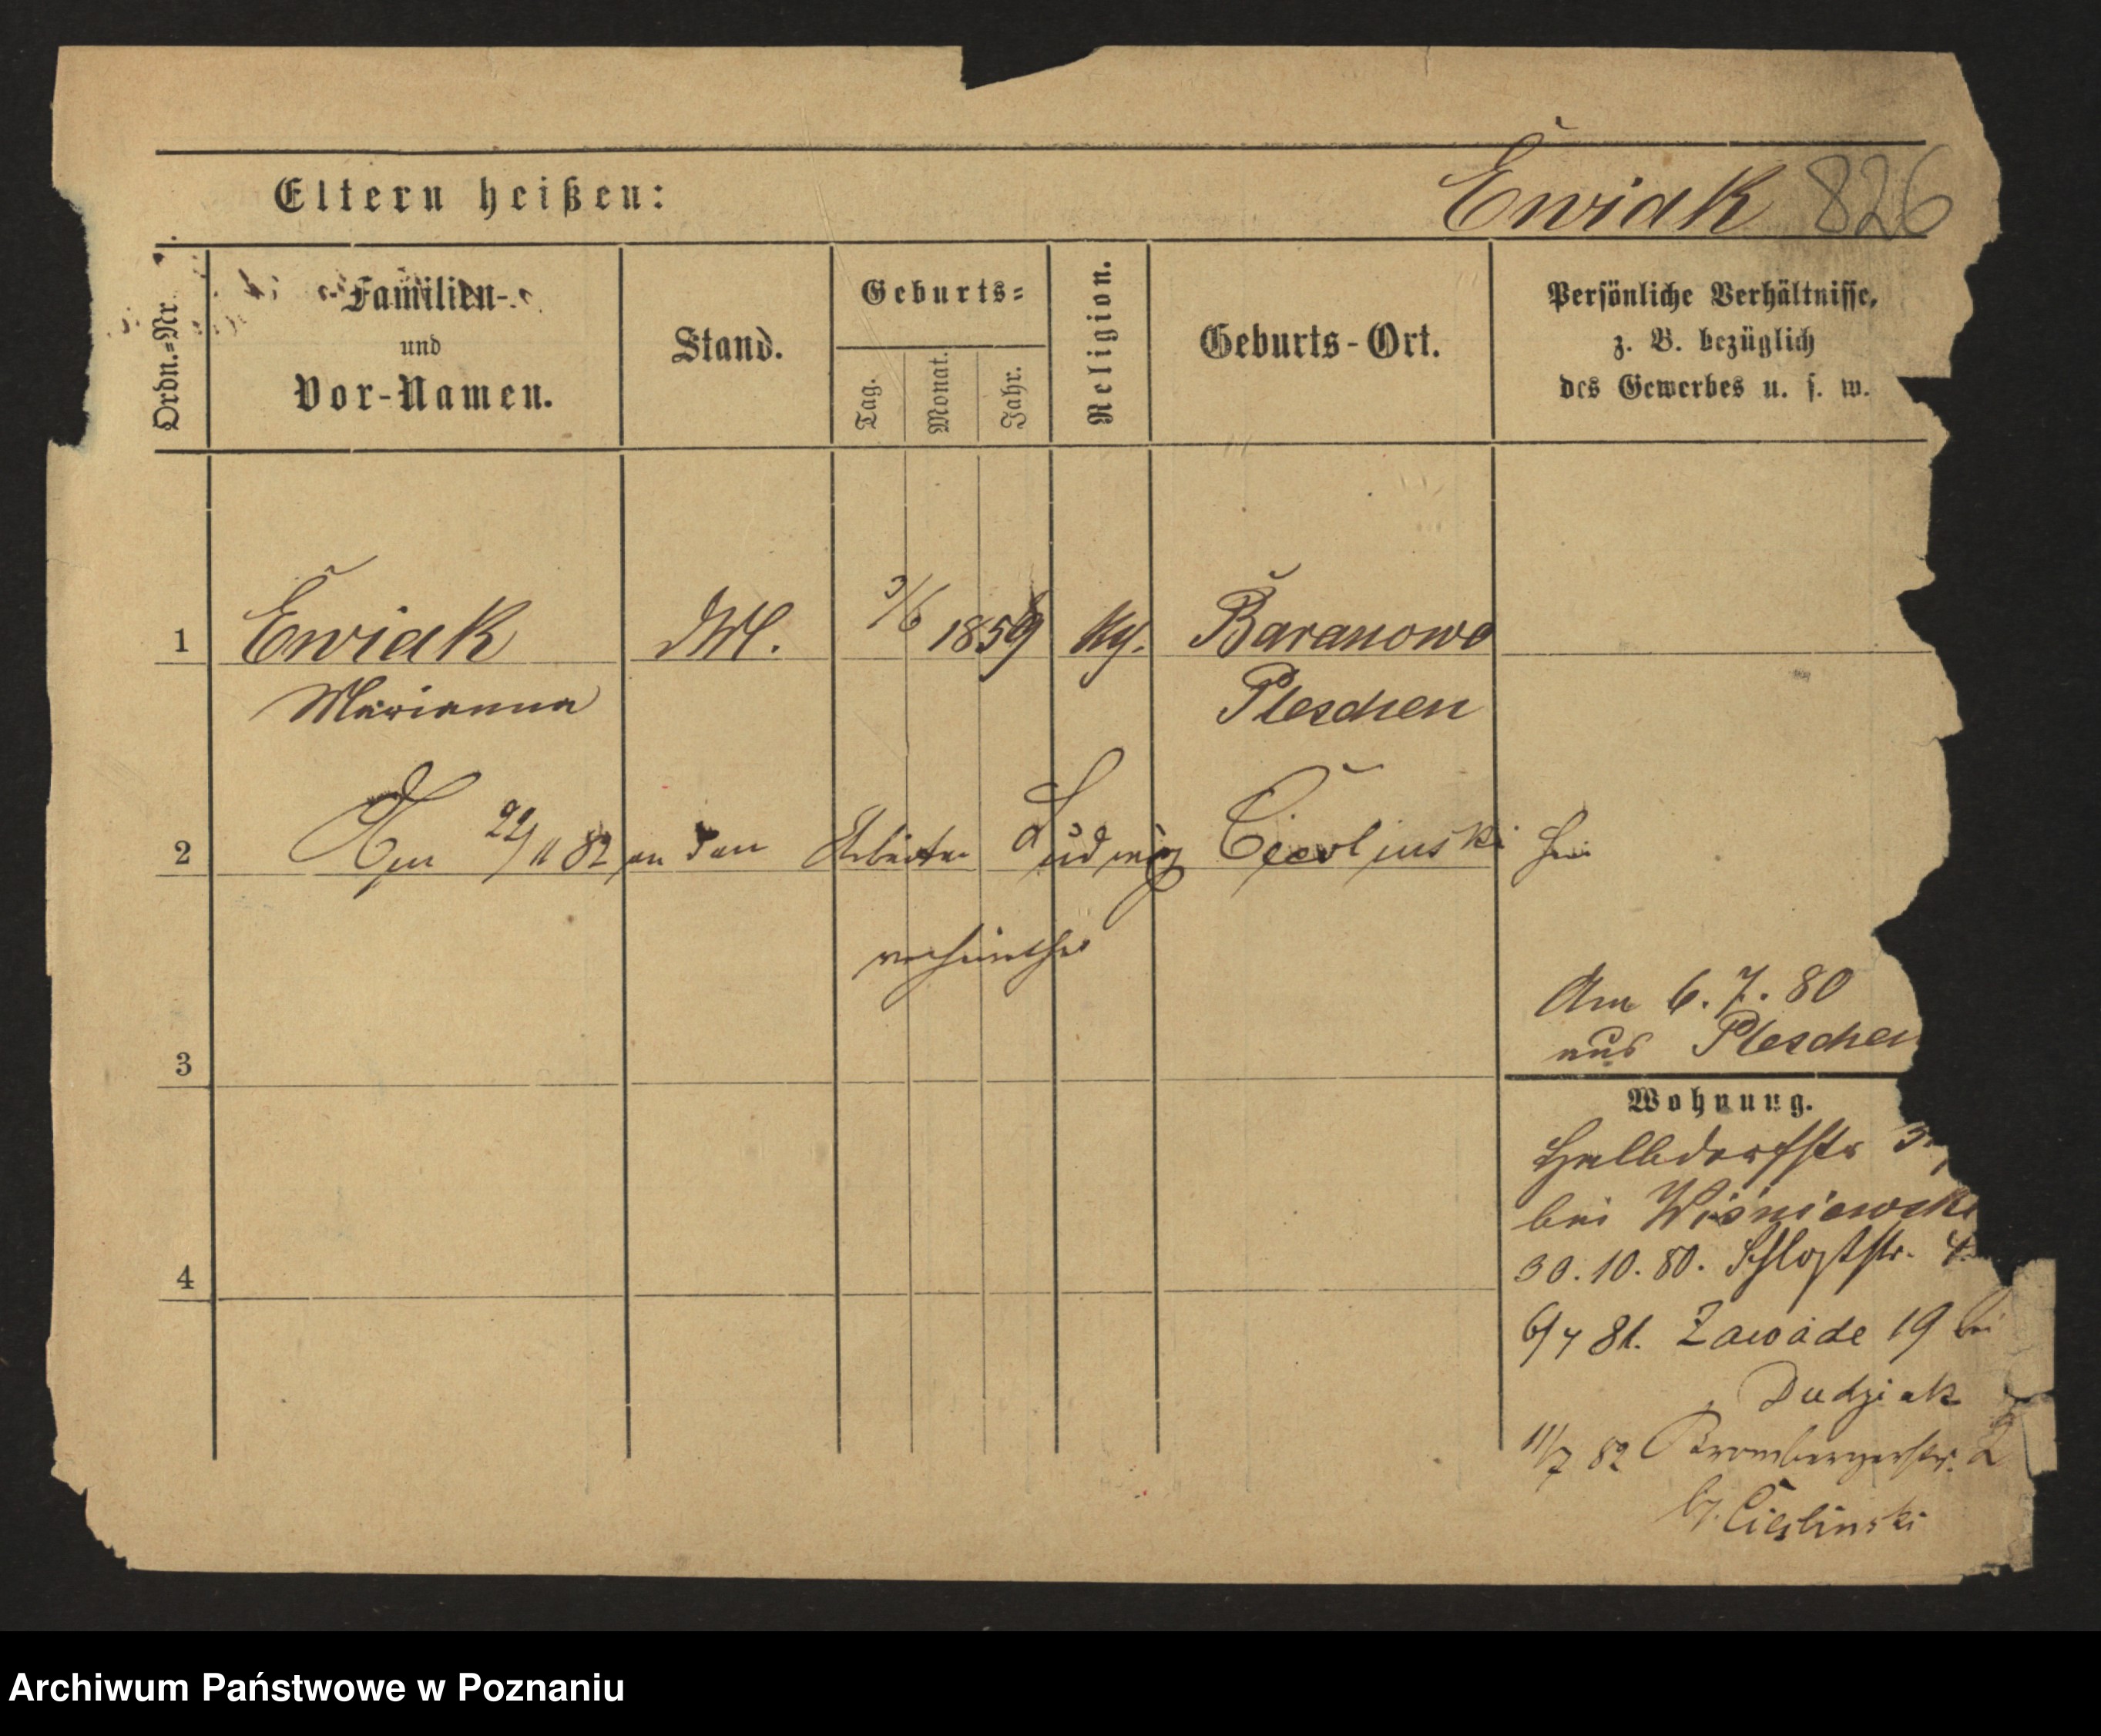 Eltern heißen:
Ewiak 826
Ordn.=Nr.
Familien-
und
Vor-Namen.
Stand.
Geburts=
Tag.
Monat.
Jahr.
Religion.
Geburts-Ort.
Persönliche Verhältnisse,
z. B. bezüglich
des Gewerbes u. s. w.
1 Ewiak 3/6 1859 Baranowo
Marianna Pleschen
2 Am 22/11 82 an den Arbeiter Ludwig hier
verheirathet
Am 6.7.80
aus Pleschen
3
Wohnung.
Halbdorfstr
bei Wiśniewski
30.10.80. Schloßstr. 4
4
6/7 81. Zawade 19 bei
Dudziak
11/7 82 Brombergerstr. 2
b. Cieślinski
Archiwum Państwowe w Poznaniu